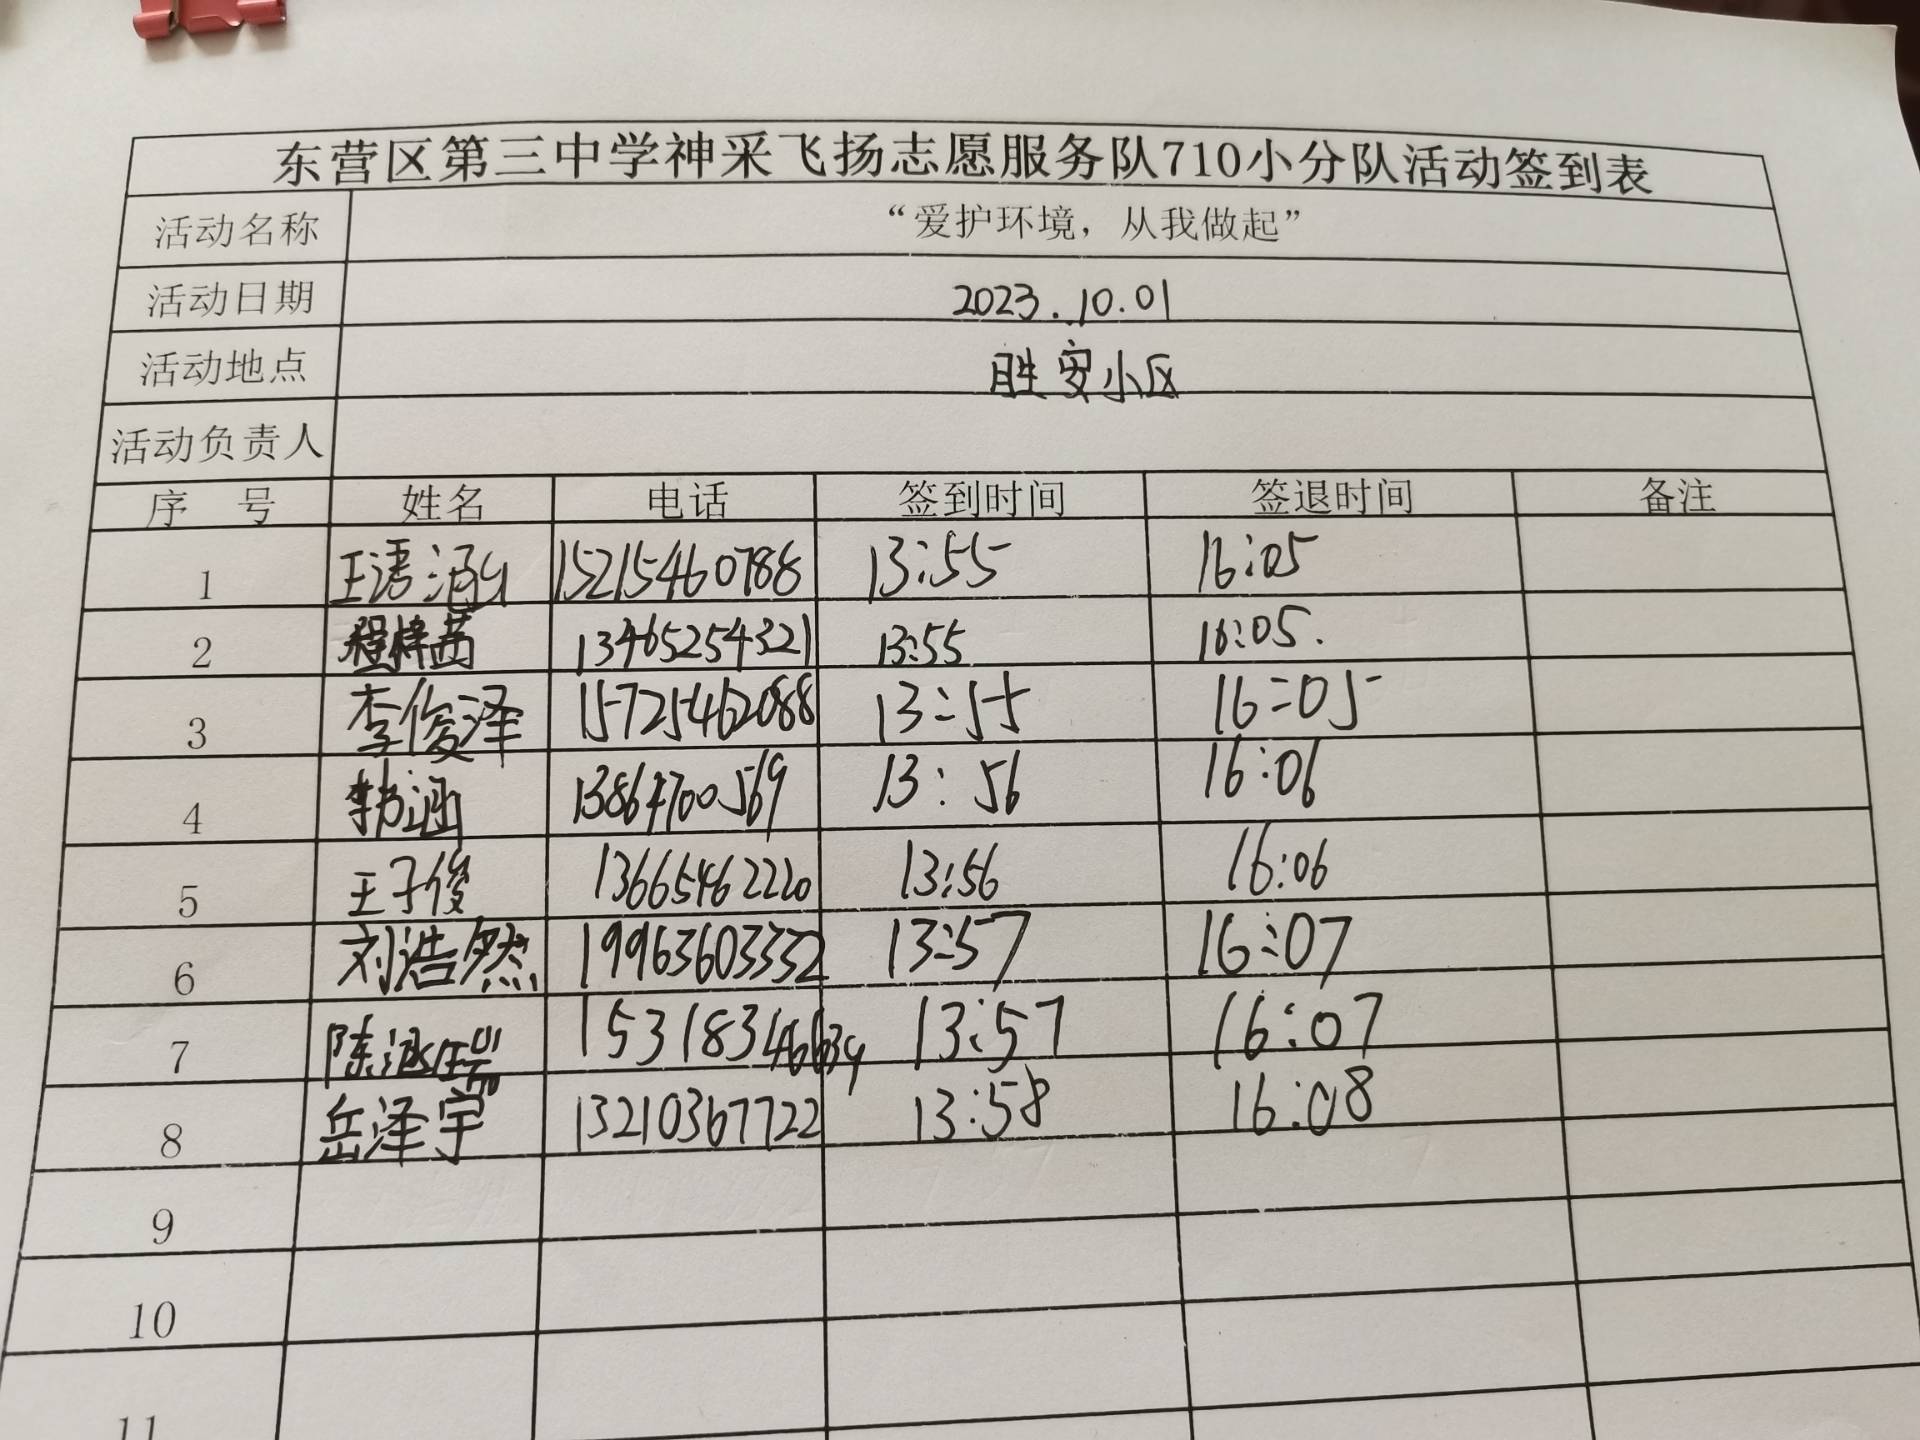 东营区第三中学神采飞扬志愿服务队710小分队活动签到表
活动名称 “爱护环境，从我做起”
活动日期 2023.10.01
活动地点 胜安小区
活动负责人
序 号 姓名 电话 签到时间 签退时间 备注
1 王涵 15215460788 13:55 16:05
2 程梓茜 13465254321 13:55 16:05.
3 李俊泽 15725462088 13:55 16:05
4 韩涵 13864700569 13:56 16:06
5 王子俊 13665462220 13:56 16:06
6 刘浩然 19963603332 13:57 16:07
7 陈泓瑞 15318346639 13:57 16:07
8 岳泽宇 13210367722 13:58 16:08
9
10
11